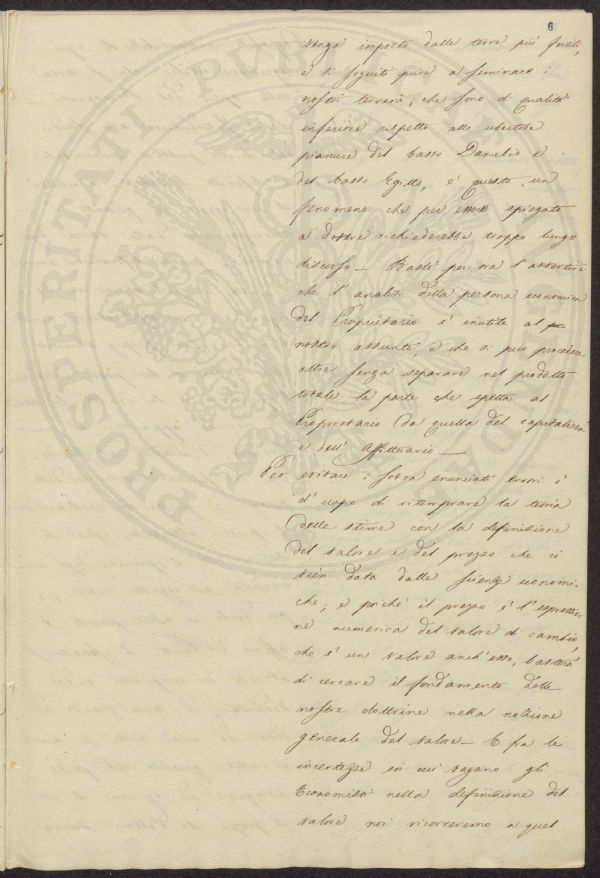 6
senza imposto dalle terre più fertili,
e si seguiti pure a seminare i
nostri terreni, che sono di qualità
inferiore rispetto alle ubertose
pianure del basso Danubio e
del basso Egitto, è questo un
fenomeno che per essere spiegato
a dovere richiederebbe troppo lungo
discorso — Basti per ora l'avvertire
che l'analisi della persona economica
del Proprietario è inutile al
nostro assunto, e che si può procedere
oltre senza separare nel prodotto
totale la parte che spetta al
Proprietario da quella del capitalista
e dell' Affittuario —
Per evitare i sopra enunciati errori è
d'uopo di ritemprare la teoria
delle stime con la definizione
del valore e del prezzo che ci
vien data dalle scienze economi-
che; e poichè il prezzo è l'espressio-
ne numerica del valore di cambio,
che è un valore anch'esso, basterà
di cercare il fondamento delle
nostre dottrine nella nozione
generale del valore — E fra le
incertezze in cui vagano gli
Economisti nella definizione del
valore noi ricorreremo a quel
PROSPERITATI PUBLICAE AUGENDAE